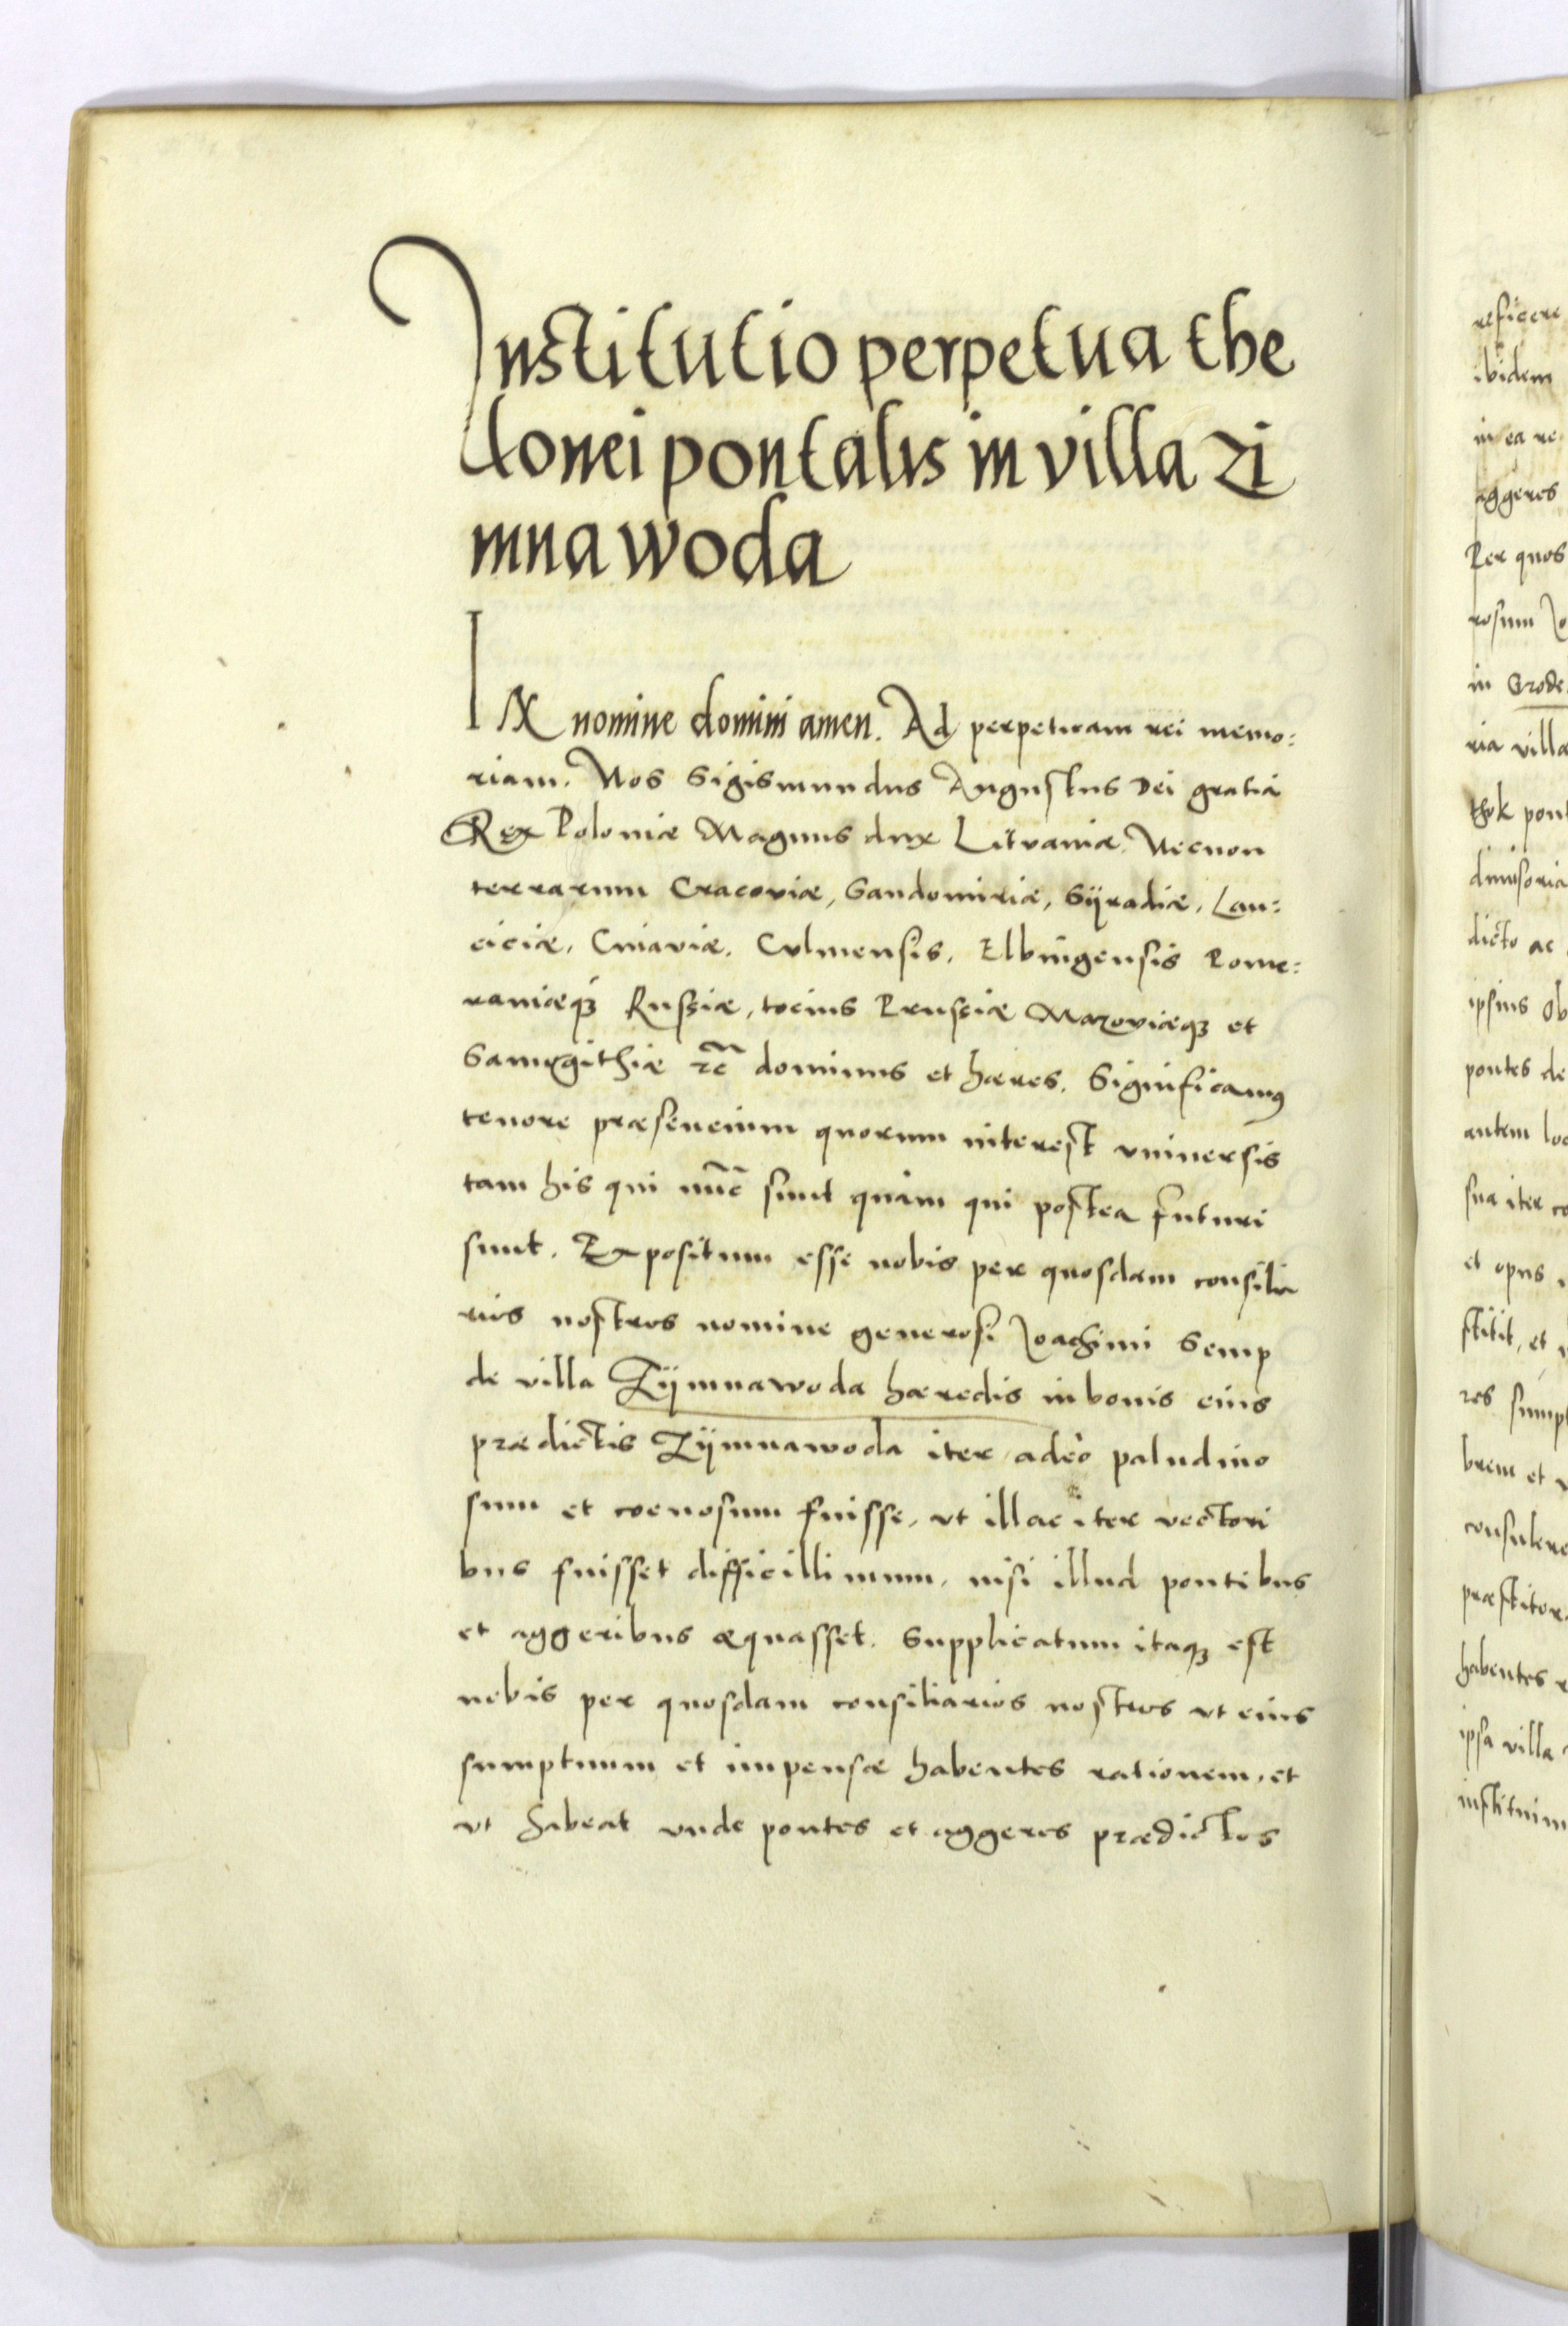 Institutio perpetua the
lonei pontalis in villa Zi
mna woda
IN nomine domini amen. Ad perpetuam rei memo:
riam. Nos Sigismundus Augustus Dei gratia
Rex Poloniæ Magnus dux Lituaniæ. Necnon
terrarum Cracoviæ, Sandomiriæ, Syradiæ, Lan:
ciciæ, Cuiaviæ, Culmensis, Elbingensis Pome:
raniæqꝫ Russiæ, tocius Prussiæ Mazoviæqꝫ et
Samogithiæ ꝛc̃ dominus et hæres. Significamꝰ
tenore præsencium quorum interest vniuersis
tam his qui nũc sunt quàm qui postea futuri
sunt. Expositum esse nobis per quosdam consilia
rios nostros nomine generosi Joachimi Semp
de villa Zÿmnawoda hæredis in bonis eius
prædictis Zÿmnawoda iter adeò paludino
sum et coenosum fuisse, vt illac iter vectori
bus fuisset difficillimum, nisi illud pontibus
et aggeribus æquasset. Supplicatum itaqꝫ est
nobis per quosdam consiliarios nostros vt eius
sumptuum et impensæ habentes rationem, et
vt habeat vnde pontes et aggeres prædictos
reficere
ibidem
in ea re
aggeres
Per quos
rosum Jo
in Grode
ria villa
thok pont
dimisoria
dicto ac
ipsius ob
pontes de
autem loc
sua iter co
et opus
stitit, et
res sumpt
brem et v
consulere
præstitor
habentes r
ipsa villa
instituim